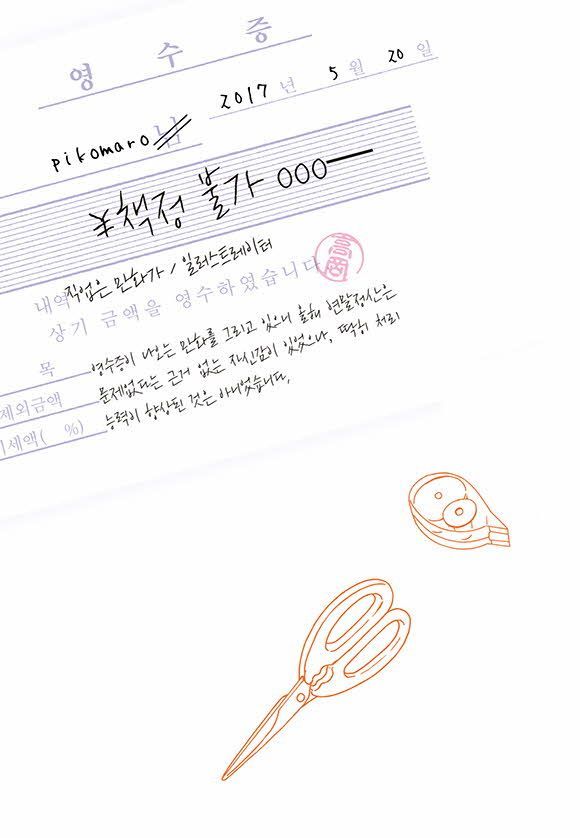 영 수 증
2017 년 5 월 20 일
pikomaro 님
¥책정 불가 000
내역 직업은 만화가 / 일러스트레이터
상기 금액을 영수하였습니다
목 영수증이 나오는 만화를 그리고 있으니 올해 연말정산은
제외금액 문제없다는 근거 없는 자신감이 있었으나, 딱히 처리
세액( %) 능력이 향상된 것은 아니었습니다.